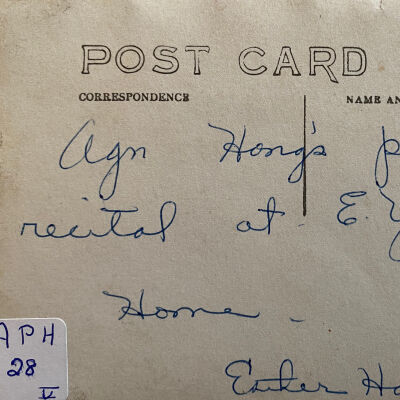 POST CARD
CORRESPONDENCE NAME AN
Agn Hong's p
recital at E.
Home -
Esther Ho
APH
28
V